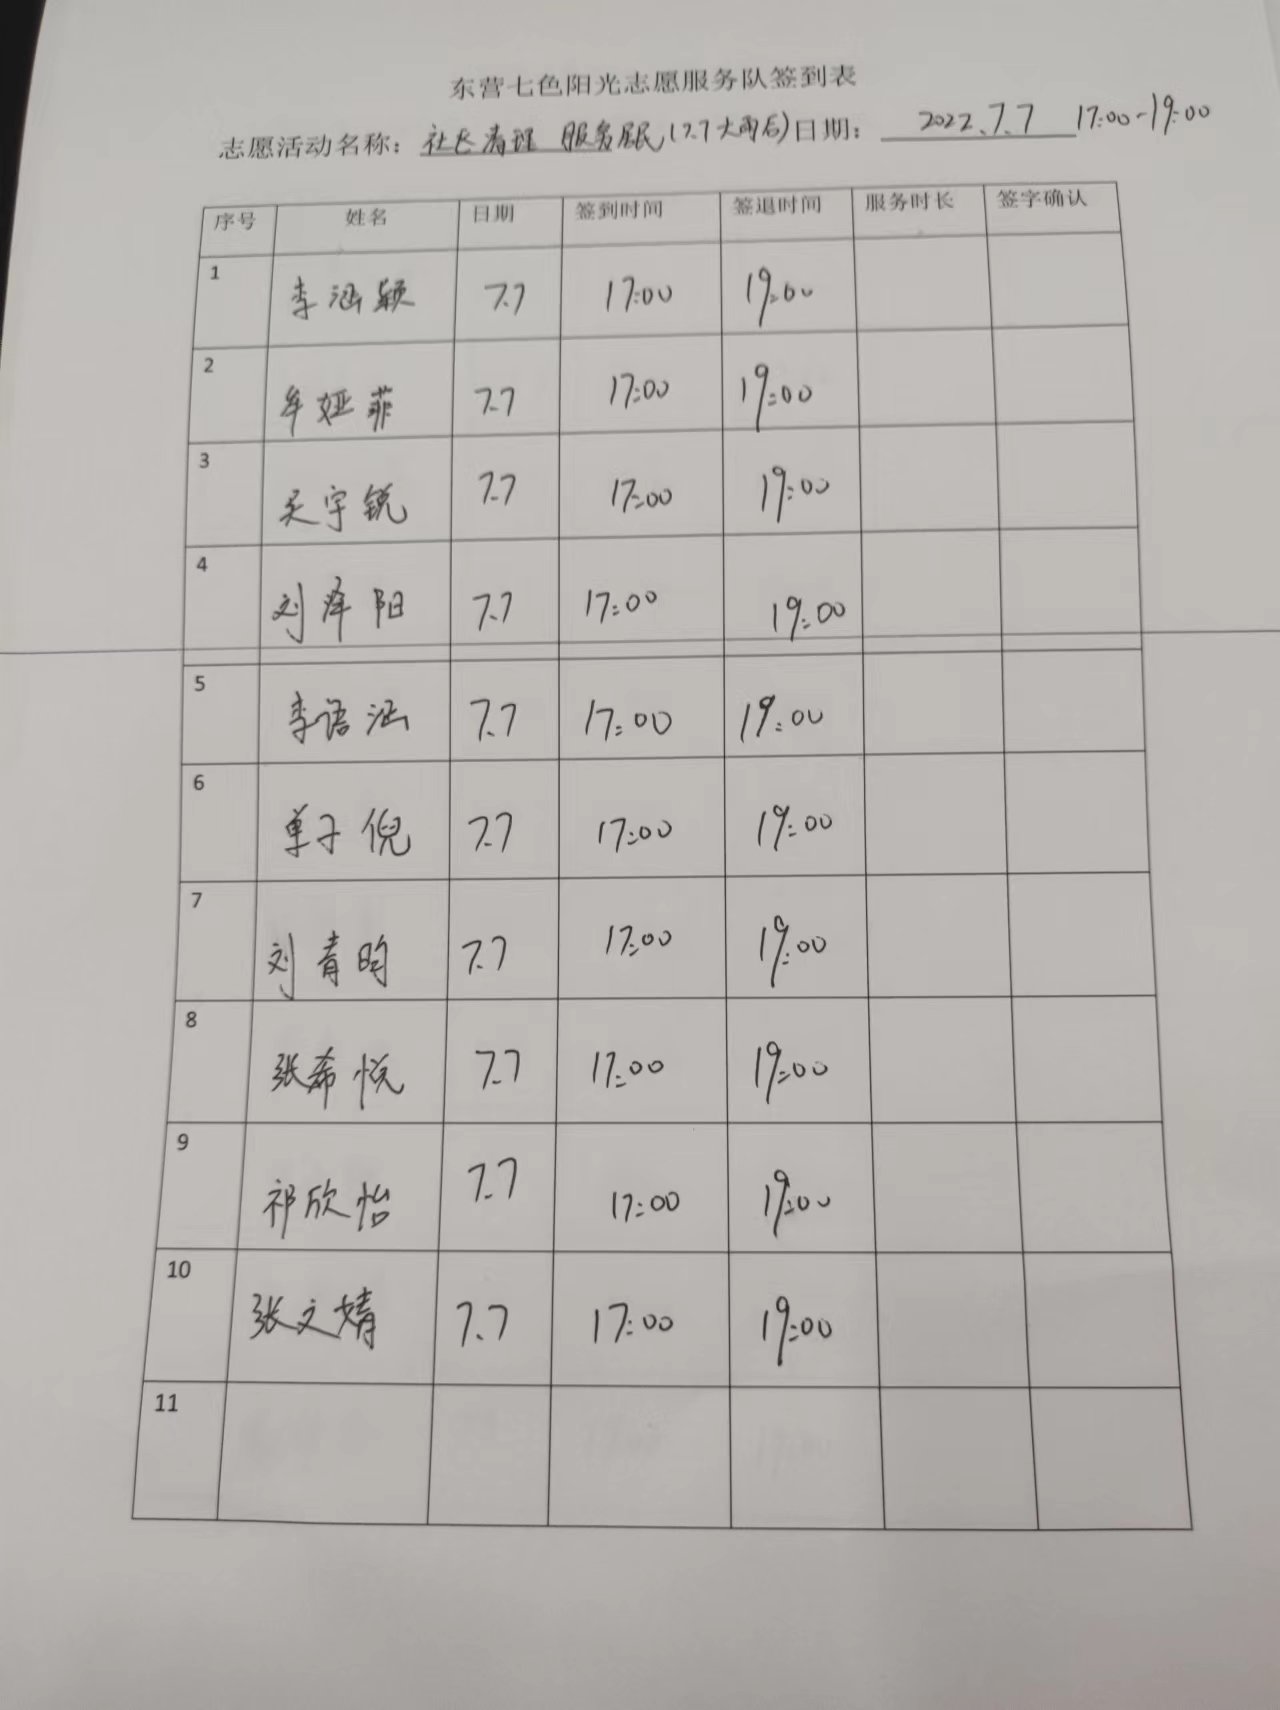 东营七色阳光志愿服务队签到表
志愿活动名称：社区清理 服务居民(7.7大雨后)日期： 2022.7.7 17:00-19:00
序号 姓名 日期 签到时间 签退时间 服务时长 签字确认
1 李涵颖 7.7 17:00 19:00
2 牟娅菲 7.7 17:00 19:00
3 吴宇锐 7.7 17:00 19:00
4 刘泽阳 7.7 17:00 19:00
5 李语涵 7.7 17:00 19:00
6 单子倪 7.7 17:00 19:00
7 刘青昀 7.7 17:00 19:00
8 张希悦 7.7 17:00 19:00
9 祁欣怡 7.7 17:00 19:00
10 张文婧 7.7 17:00 19:00
11